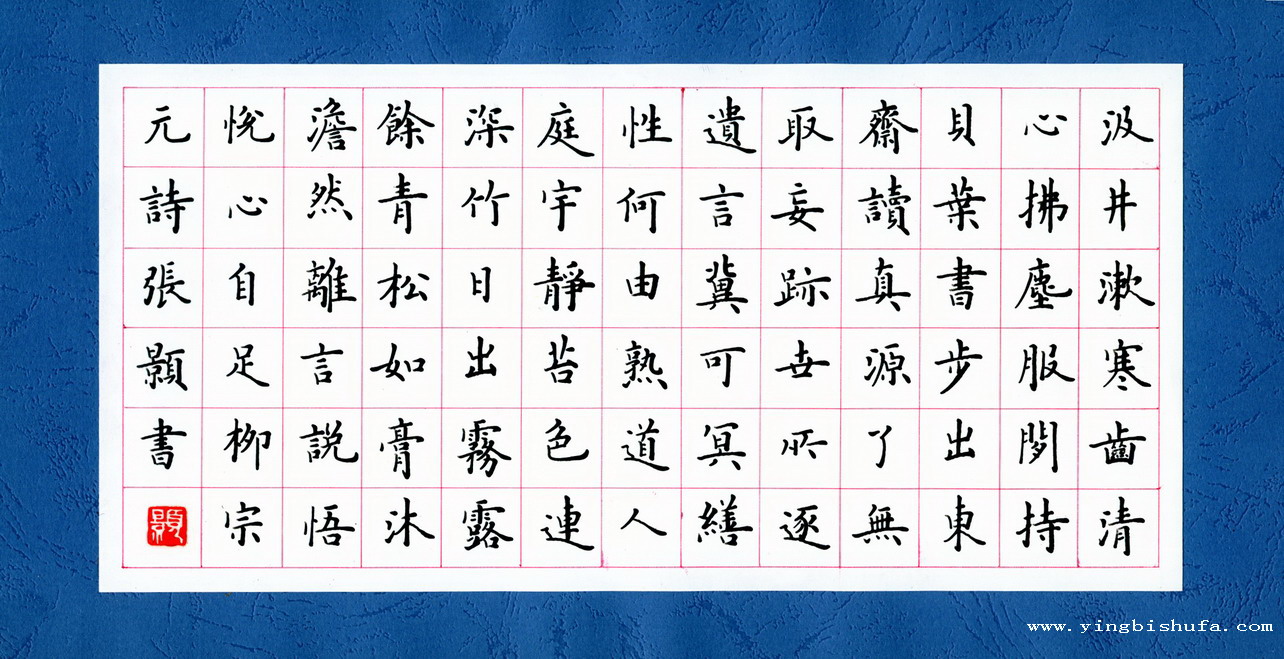 汲井漱寒齒清
心拂塵服閒持
貝葉書步出東
齋讀真源了無
取妄跡世所逐
遺言冀可冥繕
性何由熟道人
庭宇靜苔色連
深竹日出霧露
餘青松如膏沐
澹然離言説悟
悅心自足柳宗
元詩張顥書
顥
www.yingbishufa.com